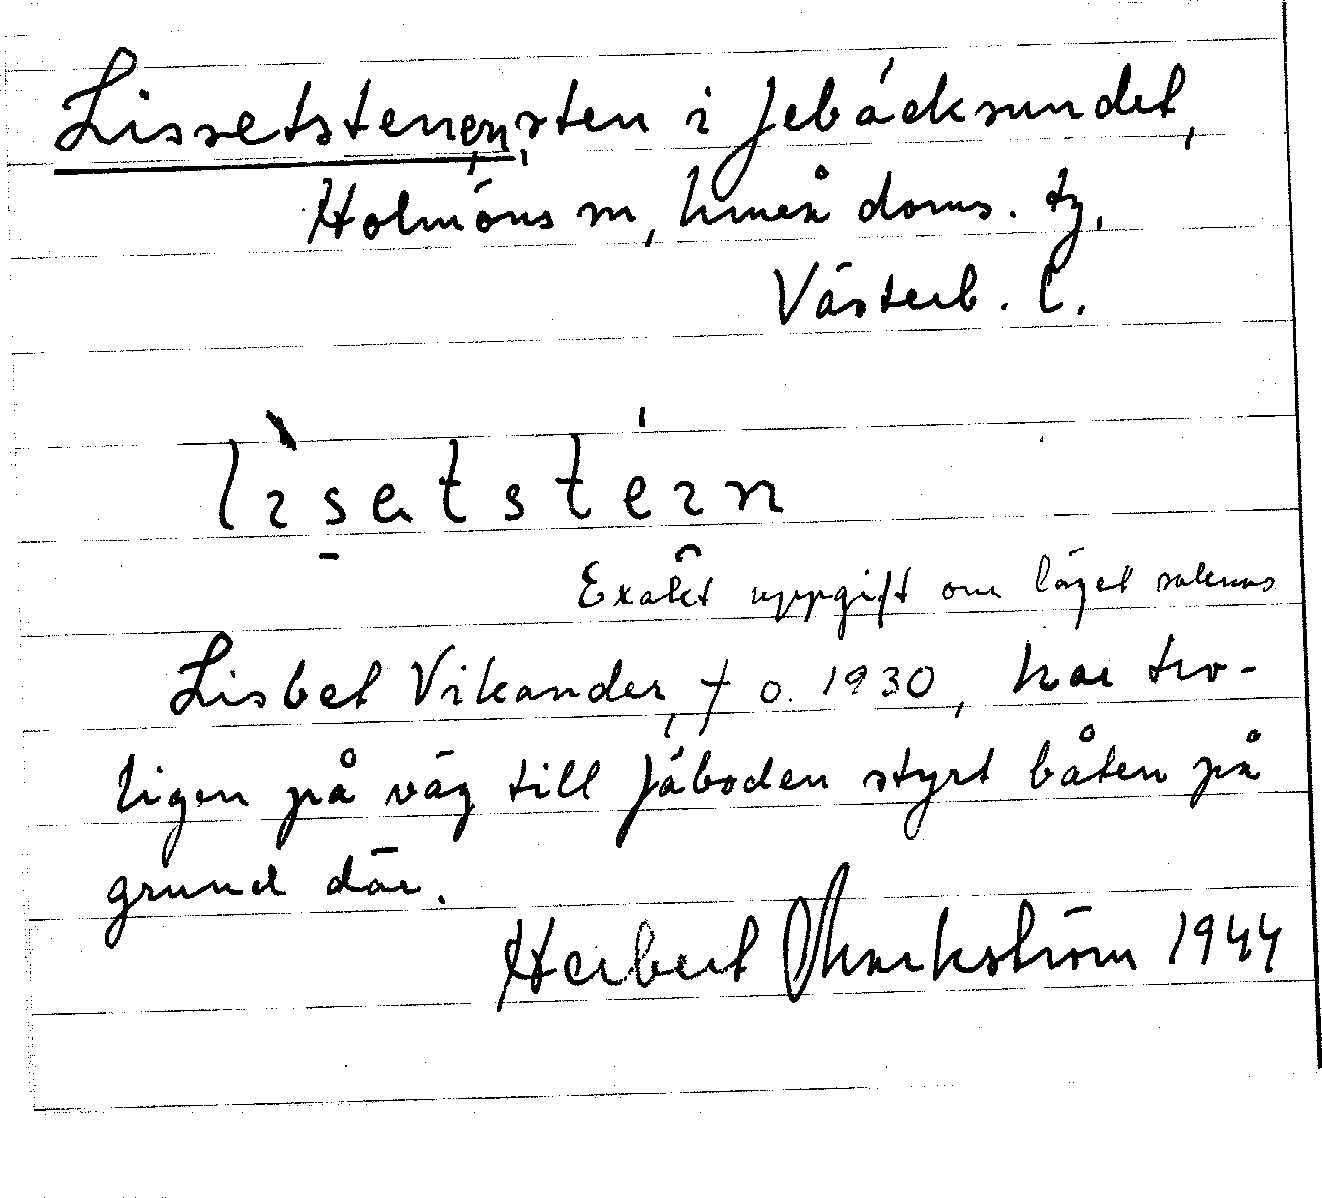 Lissetstenen, sten i Jebäcksundet,
Holmöns sn, Umeå doms. tg,
Västerb. l.
lisetstein
Exakt uppgift om läget saknas
Lisbet Vikander, † o. 1930, har tro-
ligen på väg till Jäboden styrt båten på
grund där.
Herbert Markström 1944